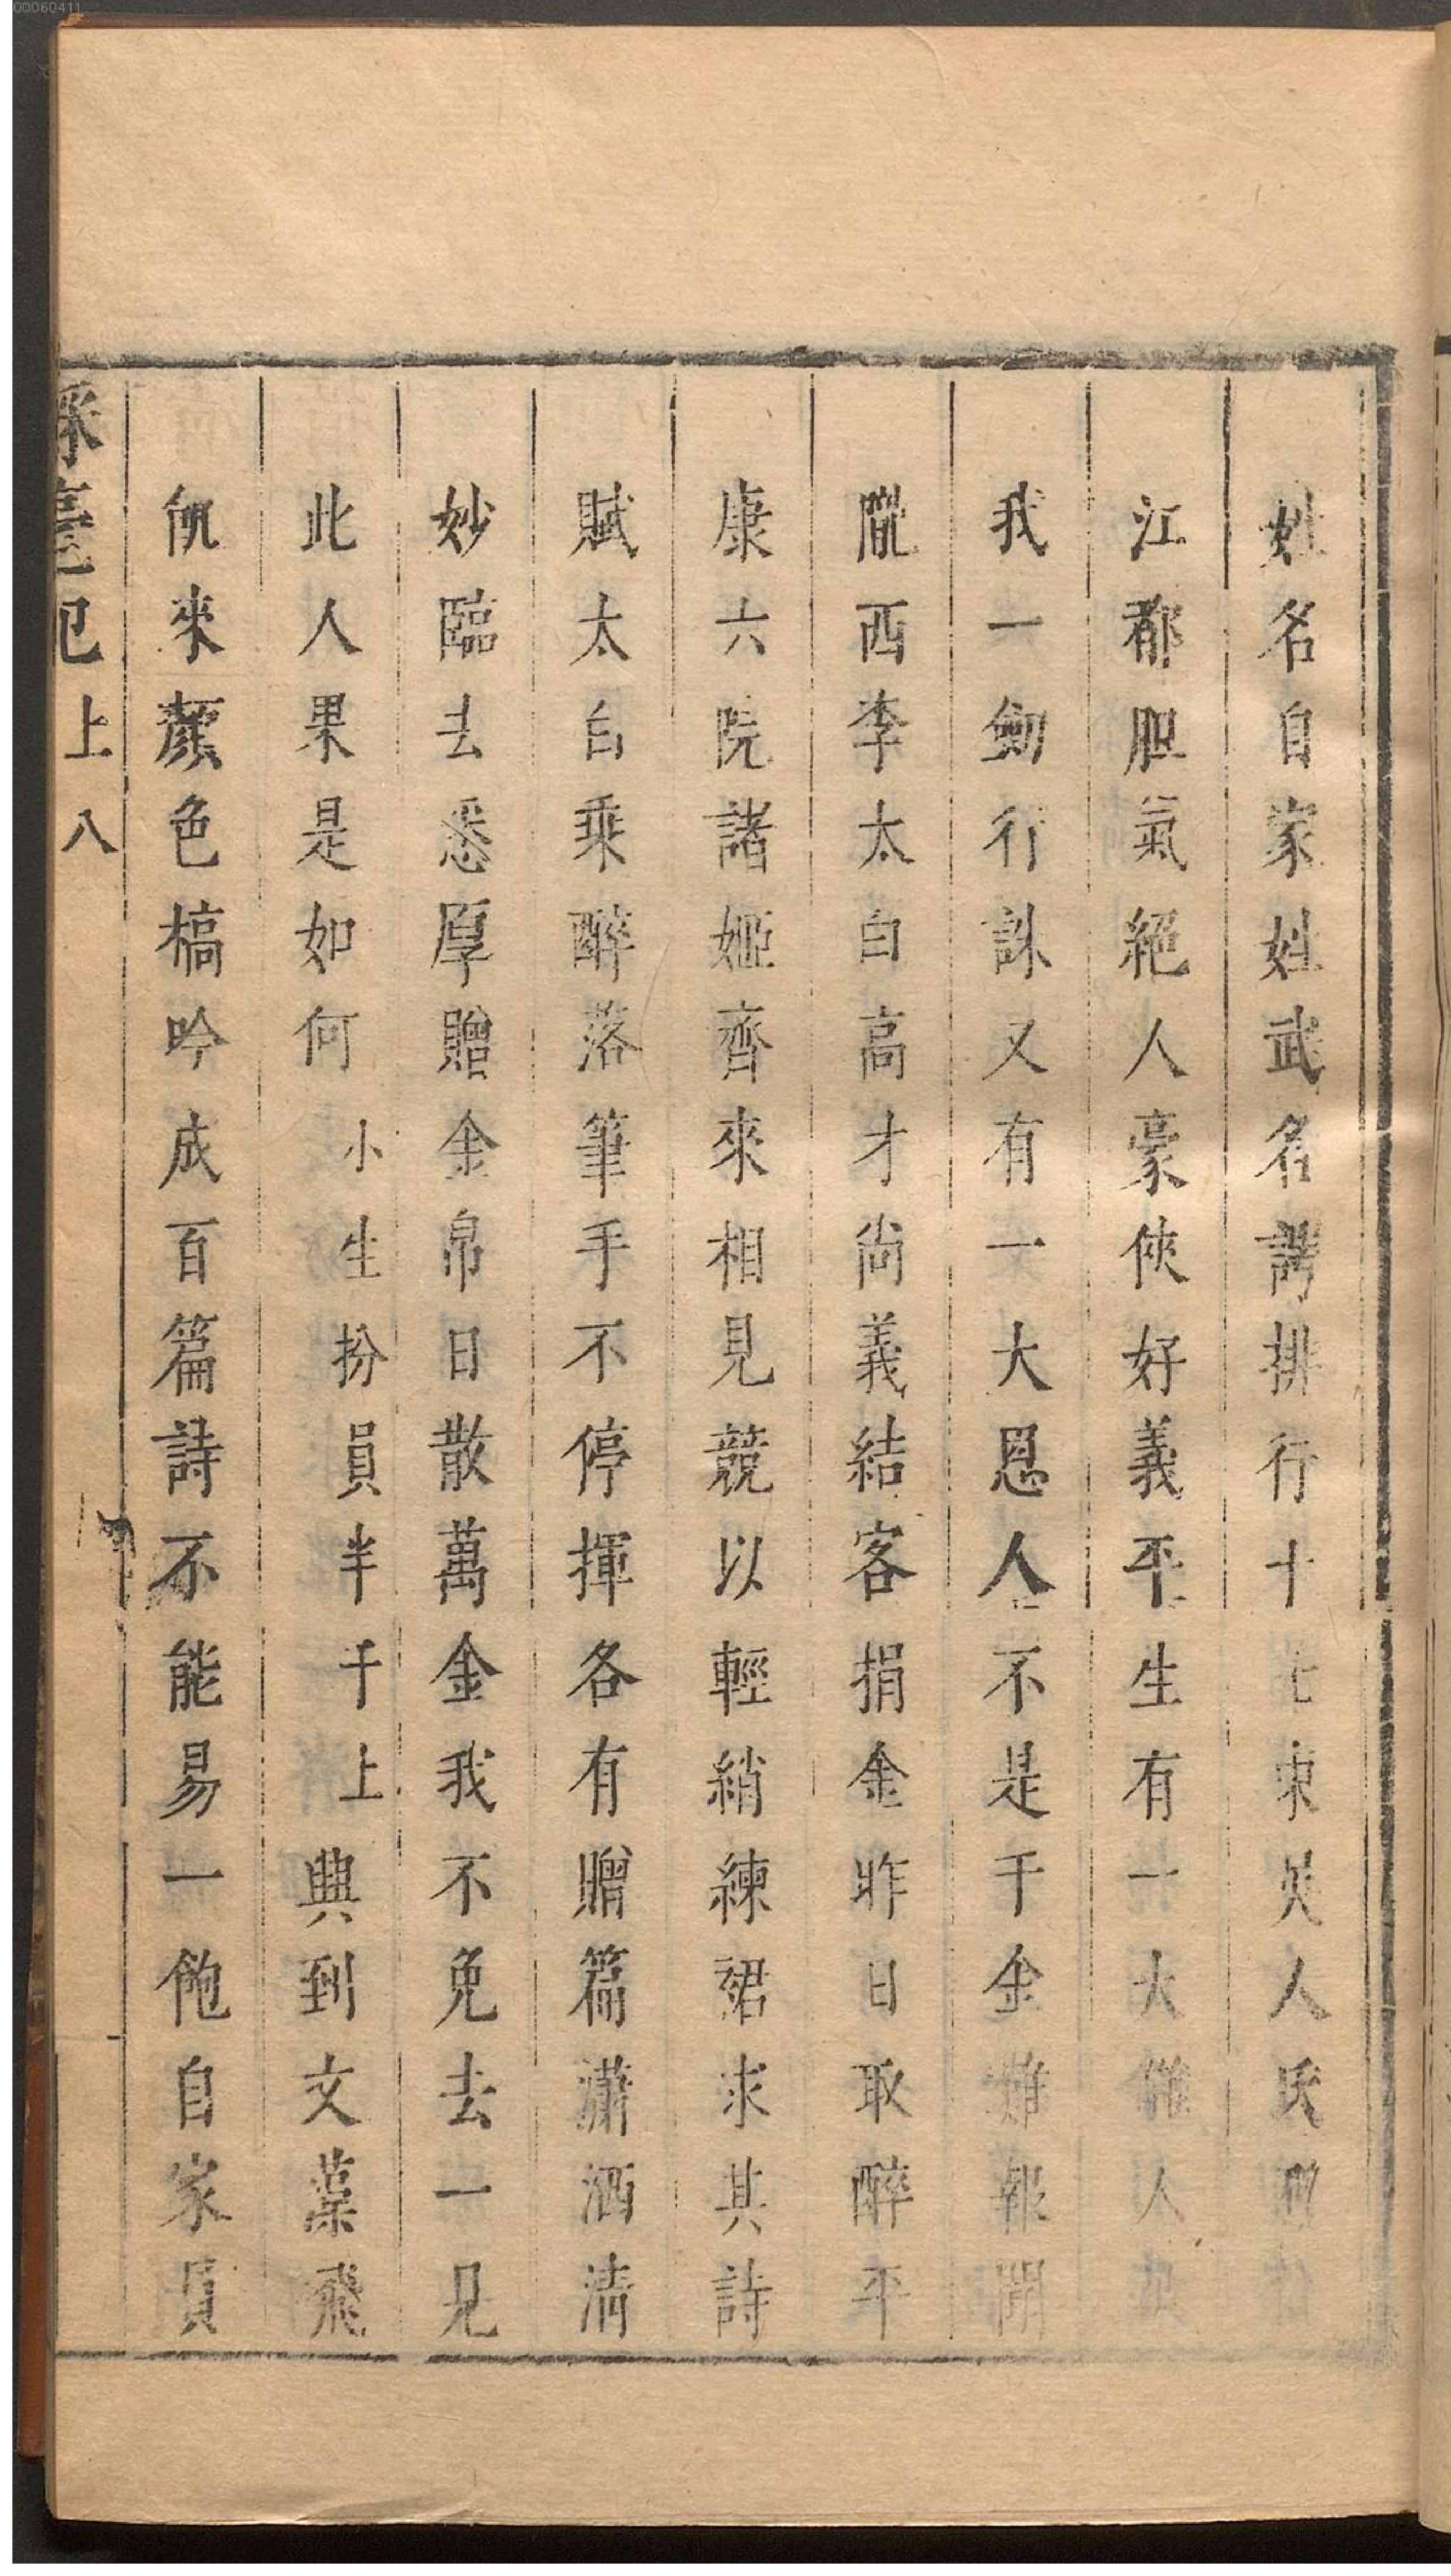 00060411
姓名自家姓武名諤排行十七東吳人氏
江都胆氣絕人豪俠好義平生有一大讎人
我一劍行誅又有一大恩人不是千金難報聞
隴西李太白高才尚義結客捐金昨日取醉平
康六院諸姬齊來相見競以輕綃練裙求其詩
賦太白乘醉落筆手不停揮各有贈篇瀟洒清
妙臨去悉厚贈金帛日散萬金我不免去一見
此人果是如何小生扮員半千上興到文葉飛
飢來顏色槁吟成百篇詩不能易一飽自家員
綵毫記上八